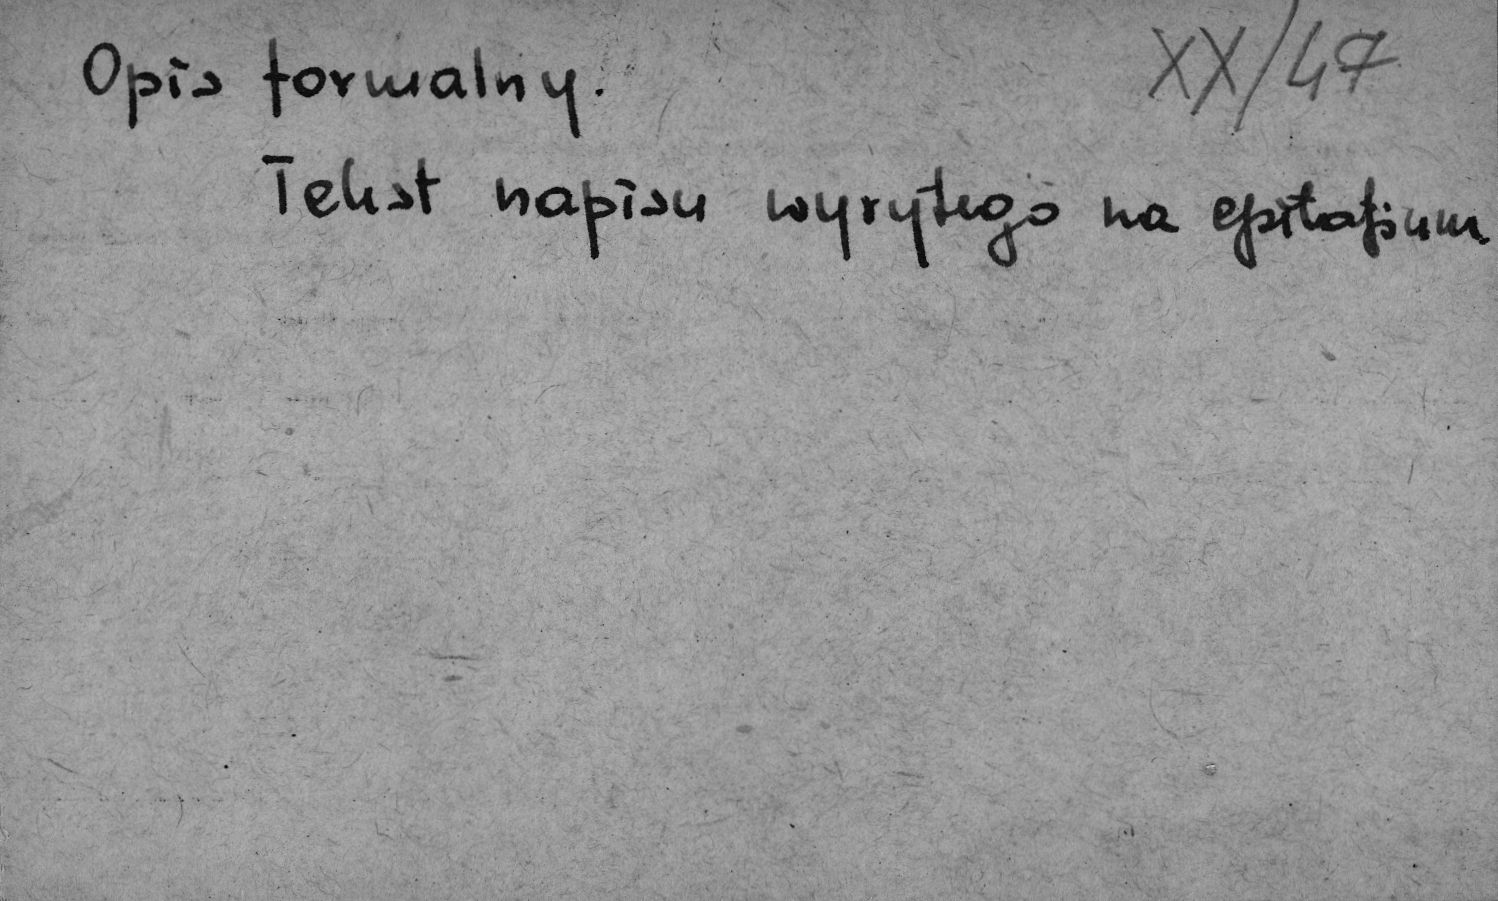 Opis formalny.
XX/47
Tekst napisu wyrytego na epitafium.